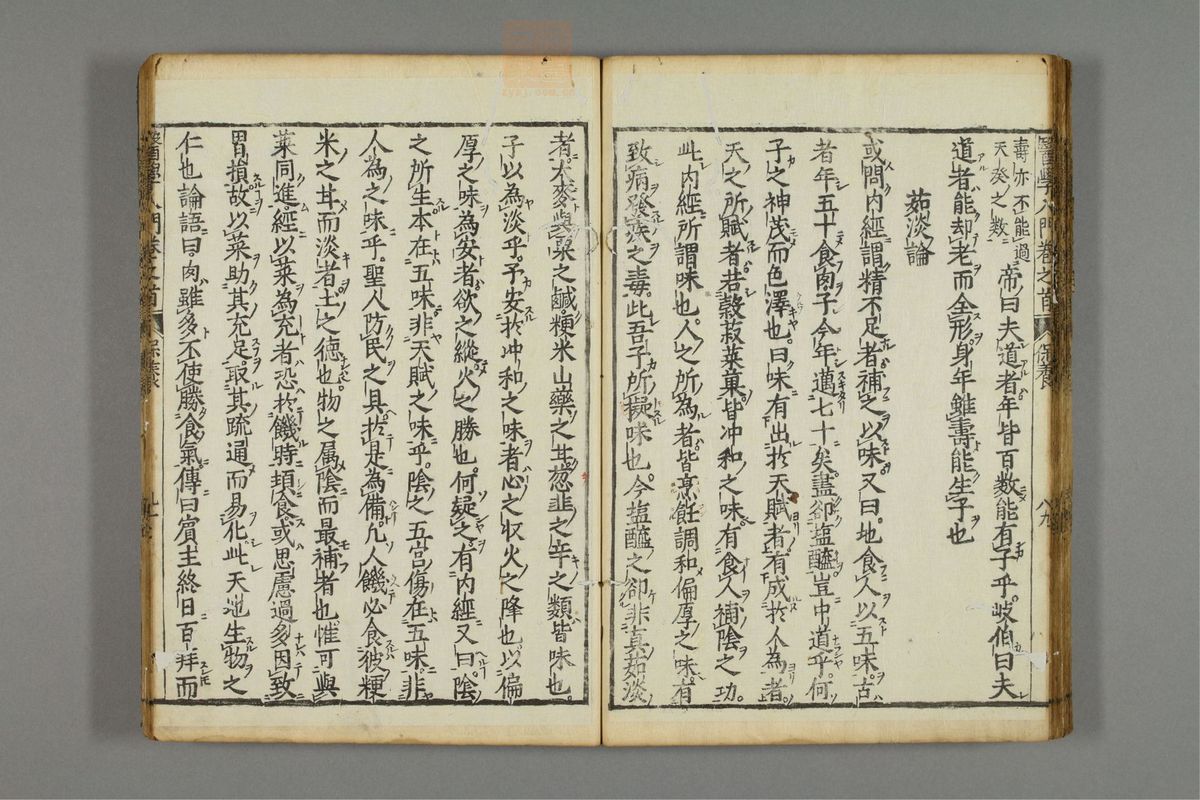 壽亦不能過
天癸之數
帝曰夫道者年皆百數能有子乎岐伯曰夫
道者能却老而全形身年雖壽能生子也
茹淡論
或問内經謂精不足者補之以味又曰地食人以五味古
者年五十食肉子今年邁七十矣盡卻塩醯豈中道乎何
子之神茂而色澤也曰味有出於天賦者有成於人為者
天之所賦者若穀菽菜菓皆冲和之味有食人補陰之功
此内經所謂味也人之所為者皆烹飪調和偏厚之味有
致病發疾之毒此吾子所擬味也今塩醯之卻非真茹淡
者大麥與粟之鹹粳米山藥之甘葱韭之辛之類皆味也
子以為淡乎予安於冲和之味者心之収火之降也以偏
厚之味為安者欲之縱火之勝也何疑之有内經又曰陰
之所生本在五味非天賦之味乎陰之五宮傷在五味非
人為之味乎聖人防民之具於是為備凡人饑必食彼粳
米之甘而淡者土之德也物之属陰而最補者也惟可與
菜同進經以菜為充者恐於饑時頓食或思慮過多因致
胃損故以菜助其充足取其疏通而易化此天地生物之
仁也論語曰肉雖多不使勝食氣傳曰賓主終日百拜而